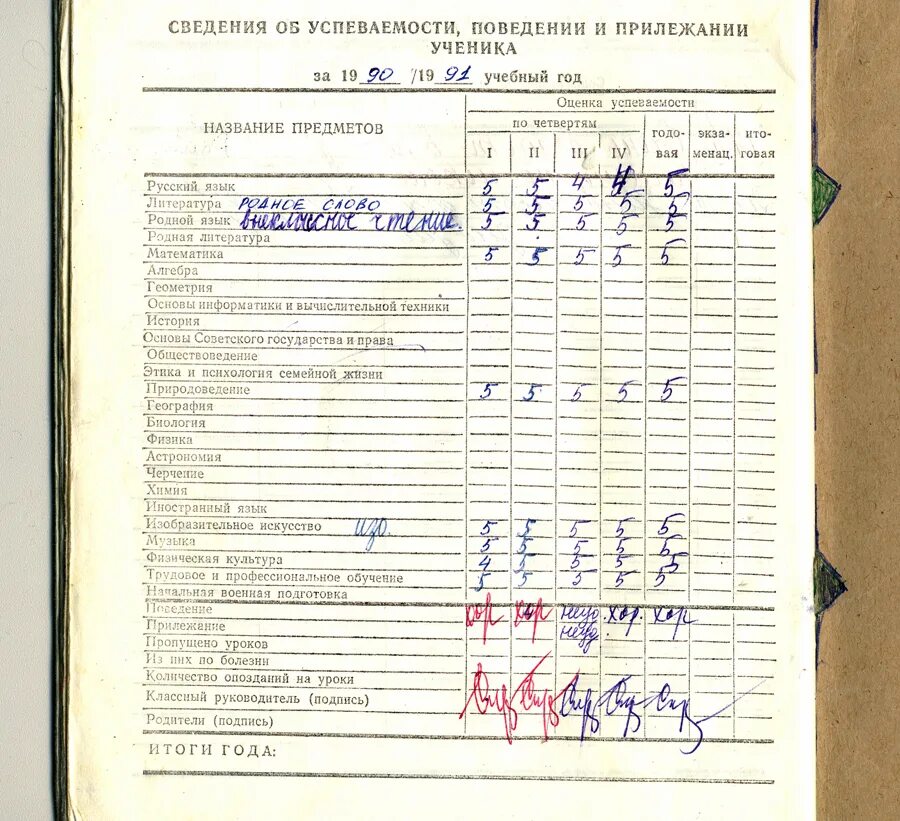 СВЕДЕНИЯ ОБ УСПЕВАЕМОСТИ, ПОВЕДЕНИИ И ПРИЛЕЖАНИИ
УЧЕНИКА
за 19 90 /19 91 учебный год
НАЗВАНИЕ ПРЕДМЕТОВ
Оценка успеваемости
по четвертям
годо-вая
экза-менац.
ито-говая
I II III IV
Русский язык 5 5 4 4 5
Литература РОДНОЕ СЛОВО 5 5 5 5 5
Родной язык внеклассное чтение. 5 5 5 5 5
Родная литература
Математика 5 5 5 5 5
Алгебра
Геометрия
Основы информатики и вычислительной техники
История
Основы Советского государства и права
Обществоведение
Этика и психология семейной жизни
Природоведение 5 5 5 5 5
География
Биология
Физика
Астрономия
Черчение
Химия
Иностранный язык
Изобразительное искусство изо. 5 5 5 5 5
Музыка 5 5 5 5 5
Физическая культура 4 5 5 5 5
Трудовое и профессиональное обучение 5 5 5 5 5
Начальная военная подготовка
Поведение хор хор неуд. хор. хор
Прилежание неуд.
Пропущено уроков
Из них по болезни
Количество опозданий на уроки
Классный руководитель (подпись)
Родители (подпись)
ИТОГИ ГОДА: